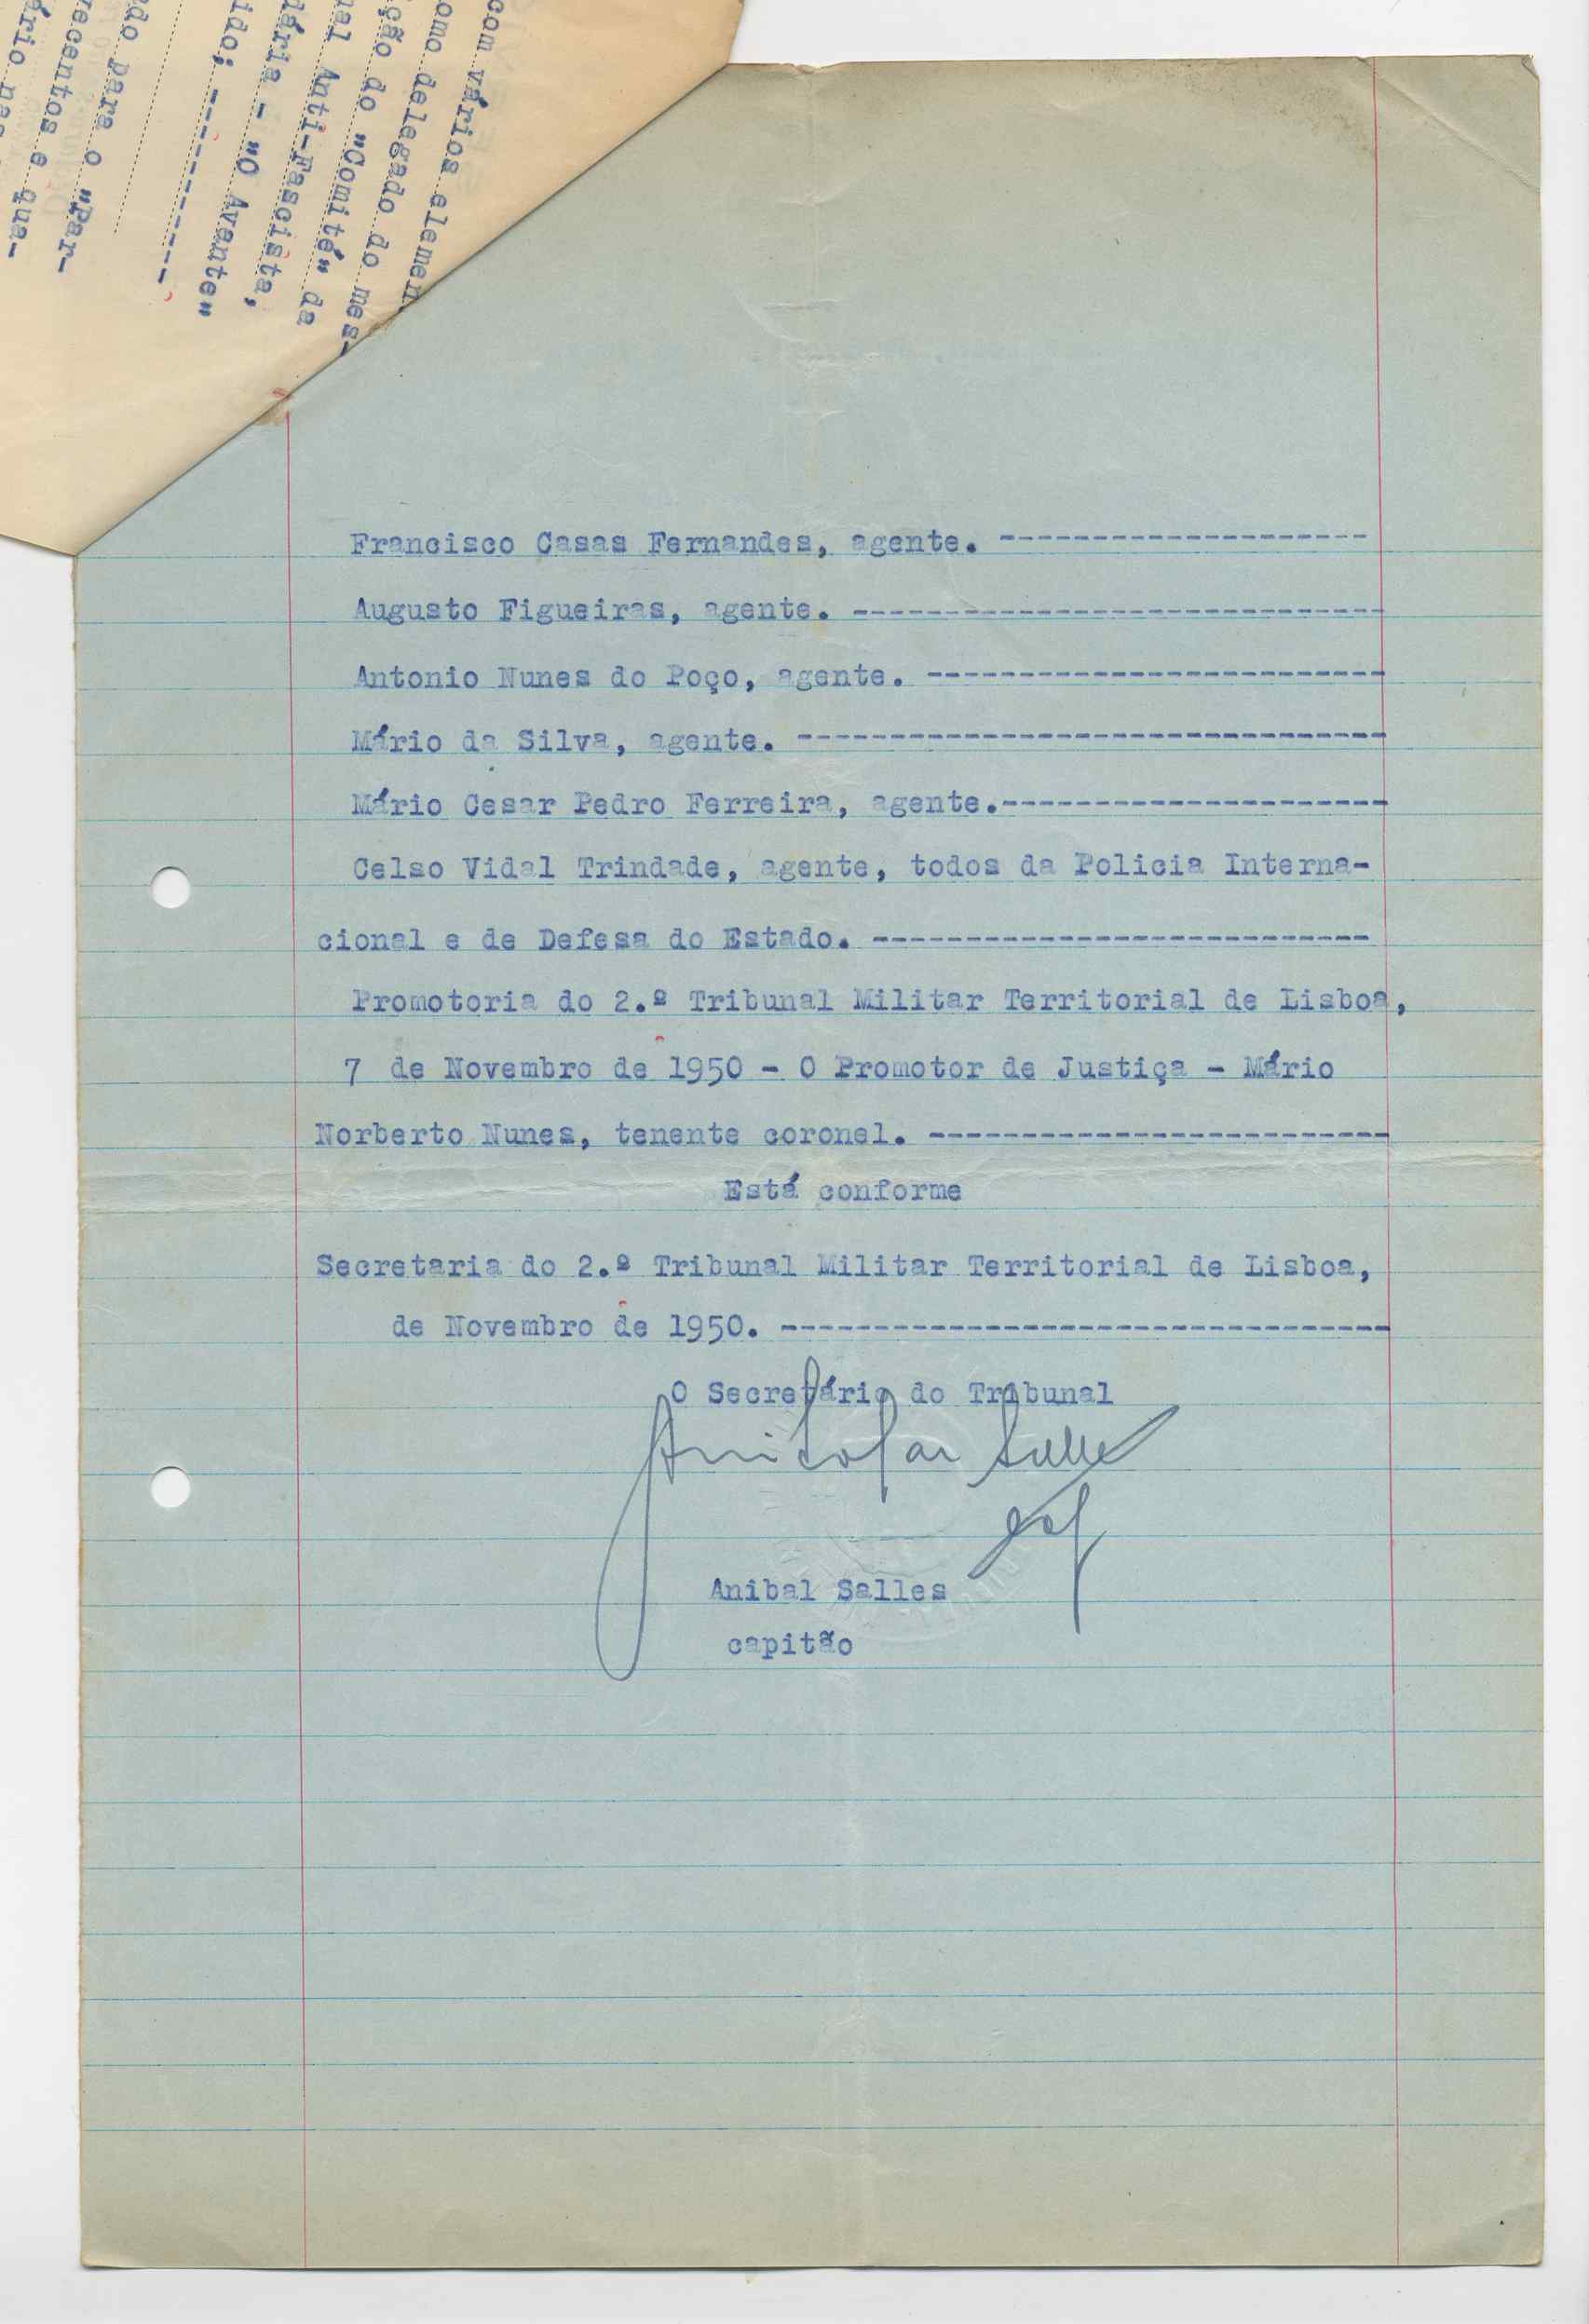 com vários elemen
omo delegado do mes-
ção do "Comité" da
nal Anti-Fascista,
dária - "O Avante"
ido; -----------
do para o "Par-
recentos e qua-
ário nas
Francisco Casas Fernandes, agente. --------------------
Augusto Figueiras, agente. -----------------------------
Antonio Nunes do Poço, agente. -------------------------
Mário da Silva, agente. --------------------------------
Mário Cesar Pedro Ferreira, agente.---------------------
Celso Vidal Trindade, agente, todos da Policia Interna-
cional e de Defesa do Estado. ---------------------------
Promotoria do 2.º Tribunal Militar Territorial de Lisboa,
7 de Novembro de 1950 - O Promotor de Justiça - Mário
Norberto Nunes, tenente coronel. -------------------------
Está conforme
Secretaria do 2.º Tribunal Militar Territorial de Lisboa,
de Novembro de 1950. ---------------------------------
O Secretário do Tribunal
Anibal Salles
capitão